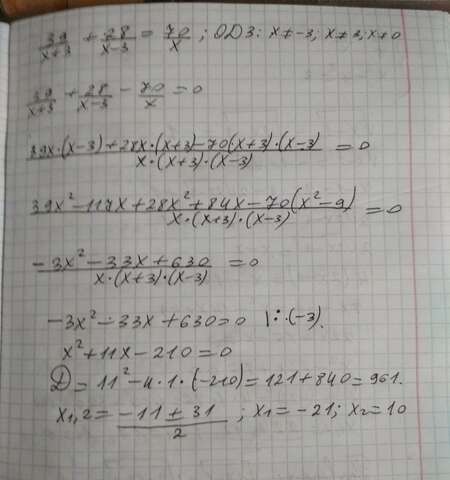 39/(x+3) + 28/(x-3) = 70/x ; ОДЗ: x≠-3; x≠3; x≠0
39/(x+3) + 28/(x-3) - 70/x = 0
(39x·(x-3)+28x·(x+3)-70(x+3)·(x-3))/(x·(x+3)·(x-3)) = 0
(39x²-117x+28x²+84x-70(x²-9))/(x·(x+3)·(x-3)) = 0
(-3x²-33x+630)/(x·(x+3)·(x-3)) = 0
-3x²-33x+630=0 |:(-3).
x²+11x-210=0
D=11²-4·1·(-210)=121+840=961.
x1,2=(-11±31)/2 ; x1=-21; x2=10